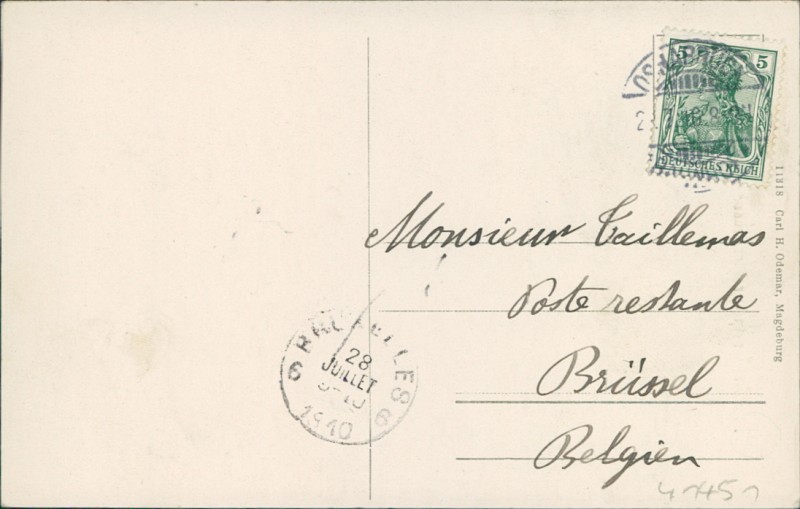 5 5
DEUTSCHES REICH
11818 Carl H. Odemar, Magdeburg
Monsieur Taillemas
Poste restante
Brüssel
Belgien
BRUXELLES
6 6
28
JUILLET
1910